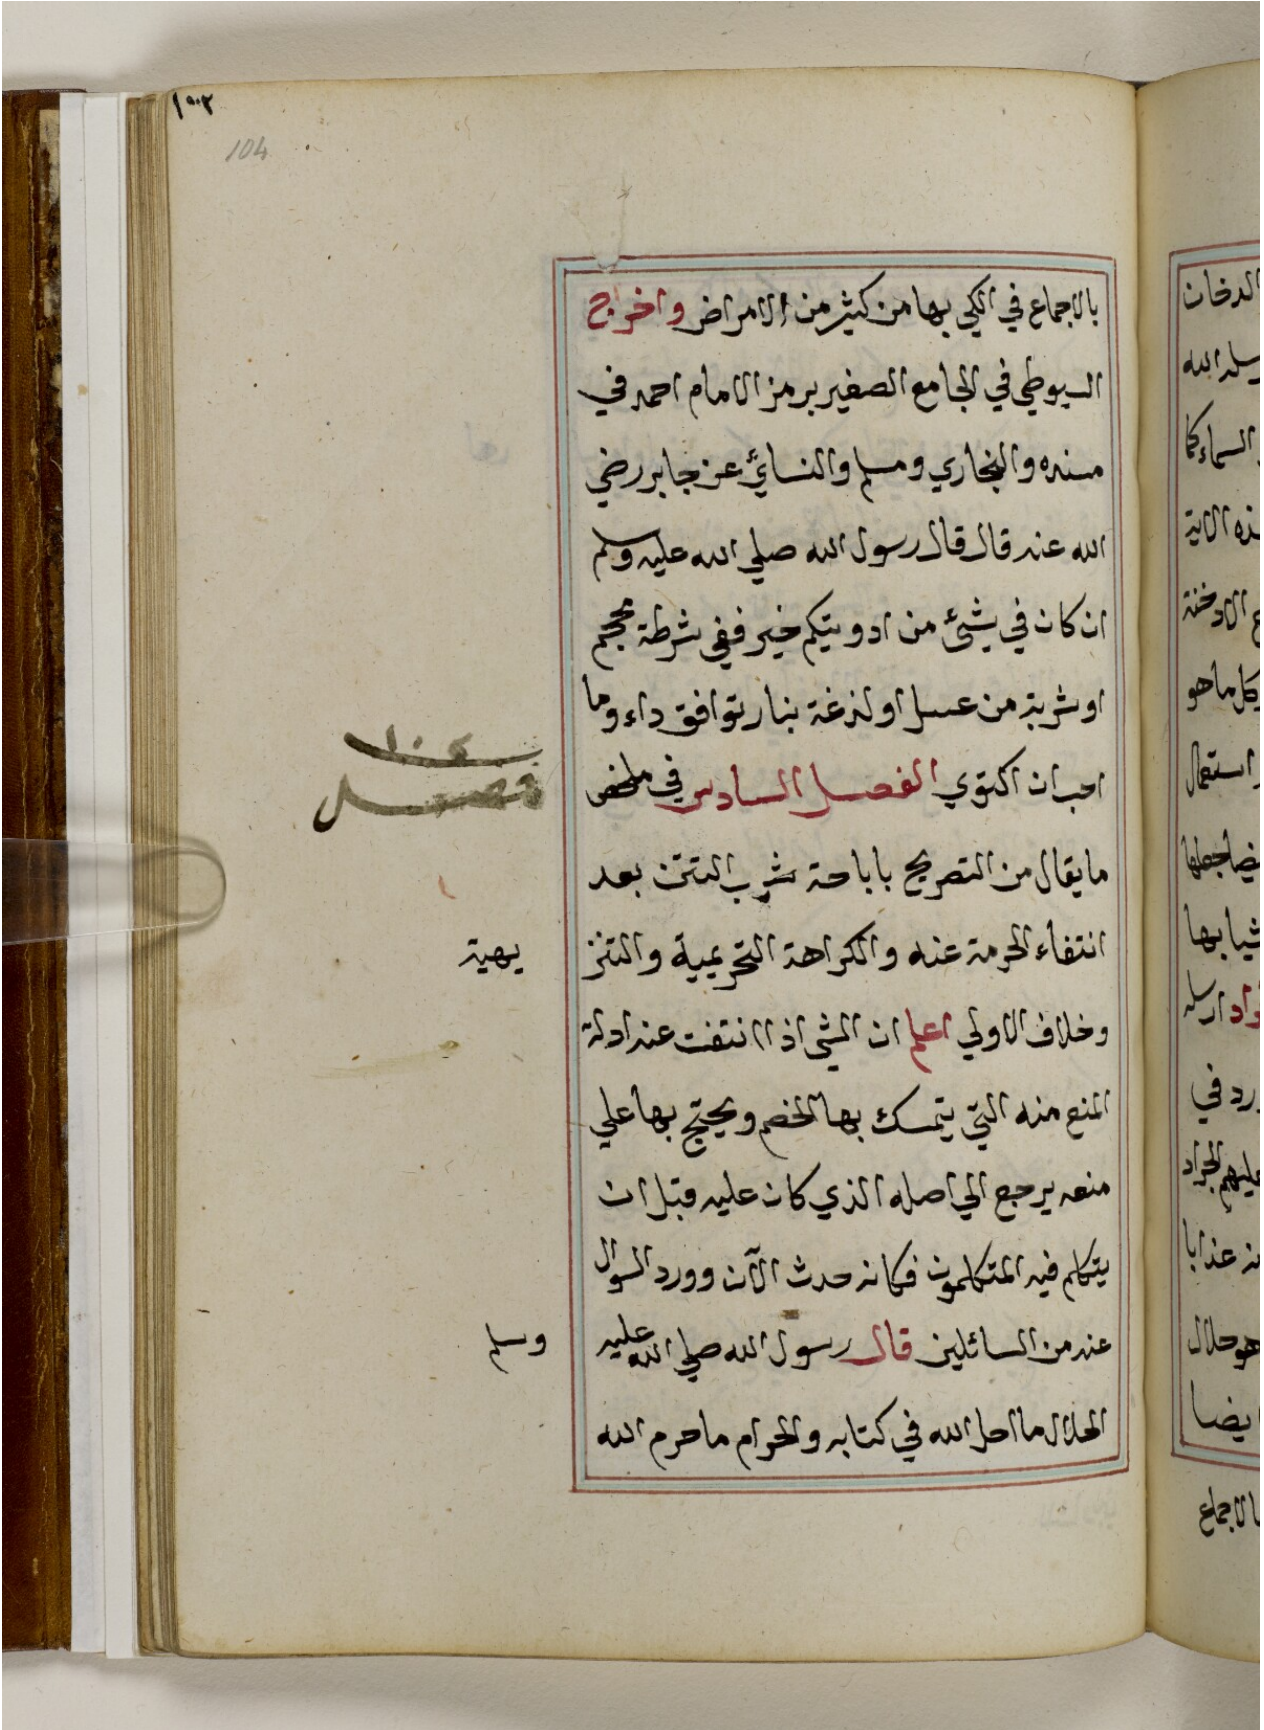 104
بالاجماع في الكي بها من كثير من الامراض واخراج
السيوطي في الجامع الصغير برمز الامام احمد في
مسنده والبخاري ومسلم والنسائي عن جابر رضي
الله عنه قال قال رسول الله صلي الله عليه وسلم
ان كان في شيئ من ادويتكم خير ففي شرطة محجم
او شربة من عسل او لذغة بنار توافق داء وما
احب ان اكتوي الفصل السادس في ملخص
فصل
ما يقال من التصريح باباحة شرب التتن بعد
انتفاء الحرمة عنه والكراهة التحريمية والتنز
يهية
وخلاف الاولي اعلم ان الشئ اذا انتفت عنه ادلة
المنع منه التي يتمسك بها الخصم ويحتج بها علي
منعه يرجع الي اصله الذي كان عليه قبل ان
يتكلم فيه المتكلمون فكانه حدث الآن وورد السوال
عنه من السائلين قال رسول الله صلي الله عليه
وسلم
الحلال ما احل الله في كتابه والحرام ما حرم الله
الدخان
رسله الله
السماء كما
هذه الاية
الادخنة
وكل ما هو
استعمال
ثيابها
ارسله
ورد في
عليهم الجراد
عذابا
هو حلال
ايضا
بالاجماع